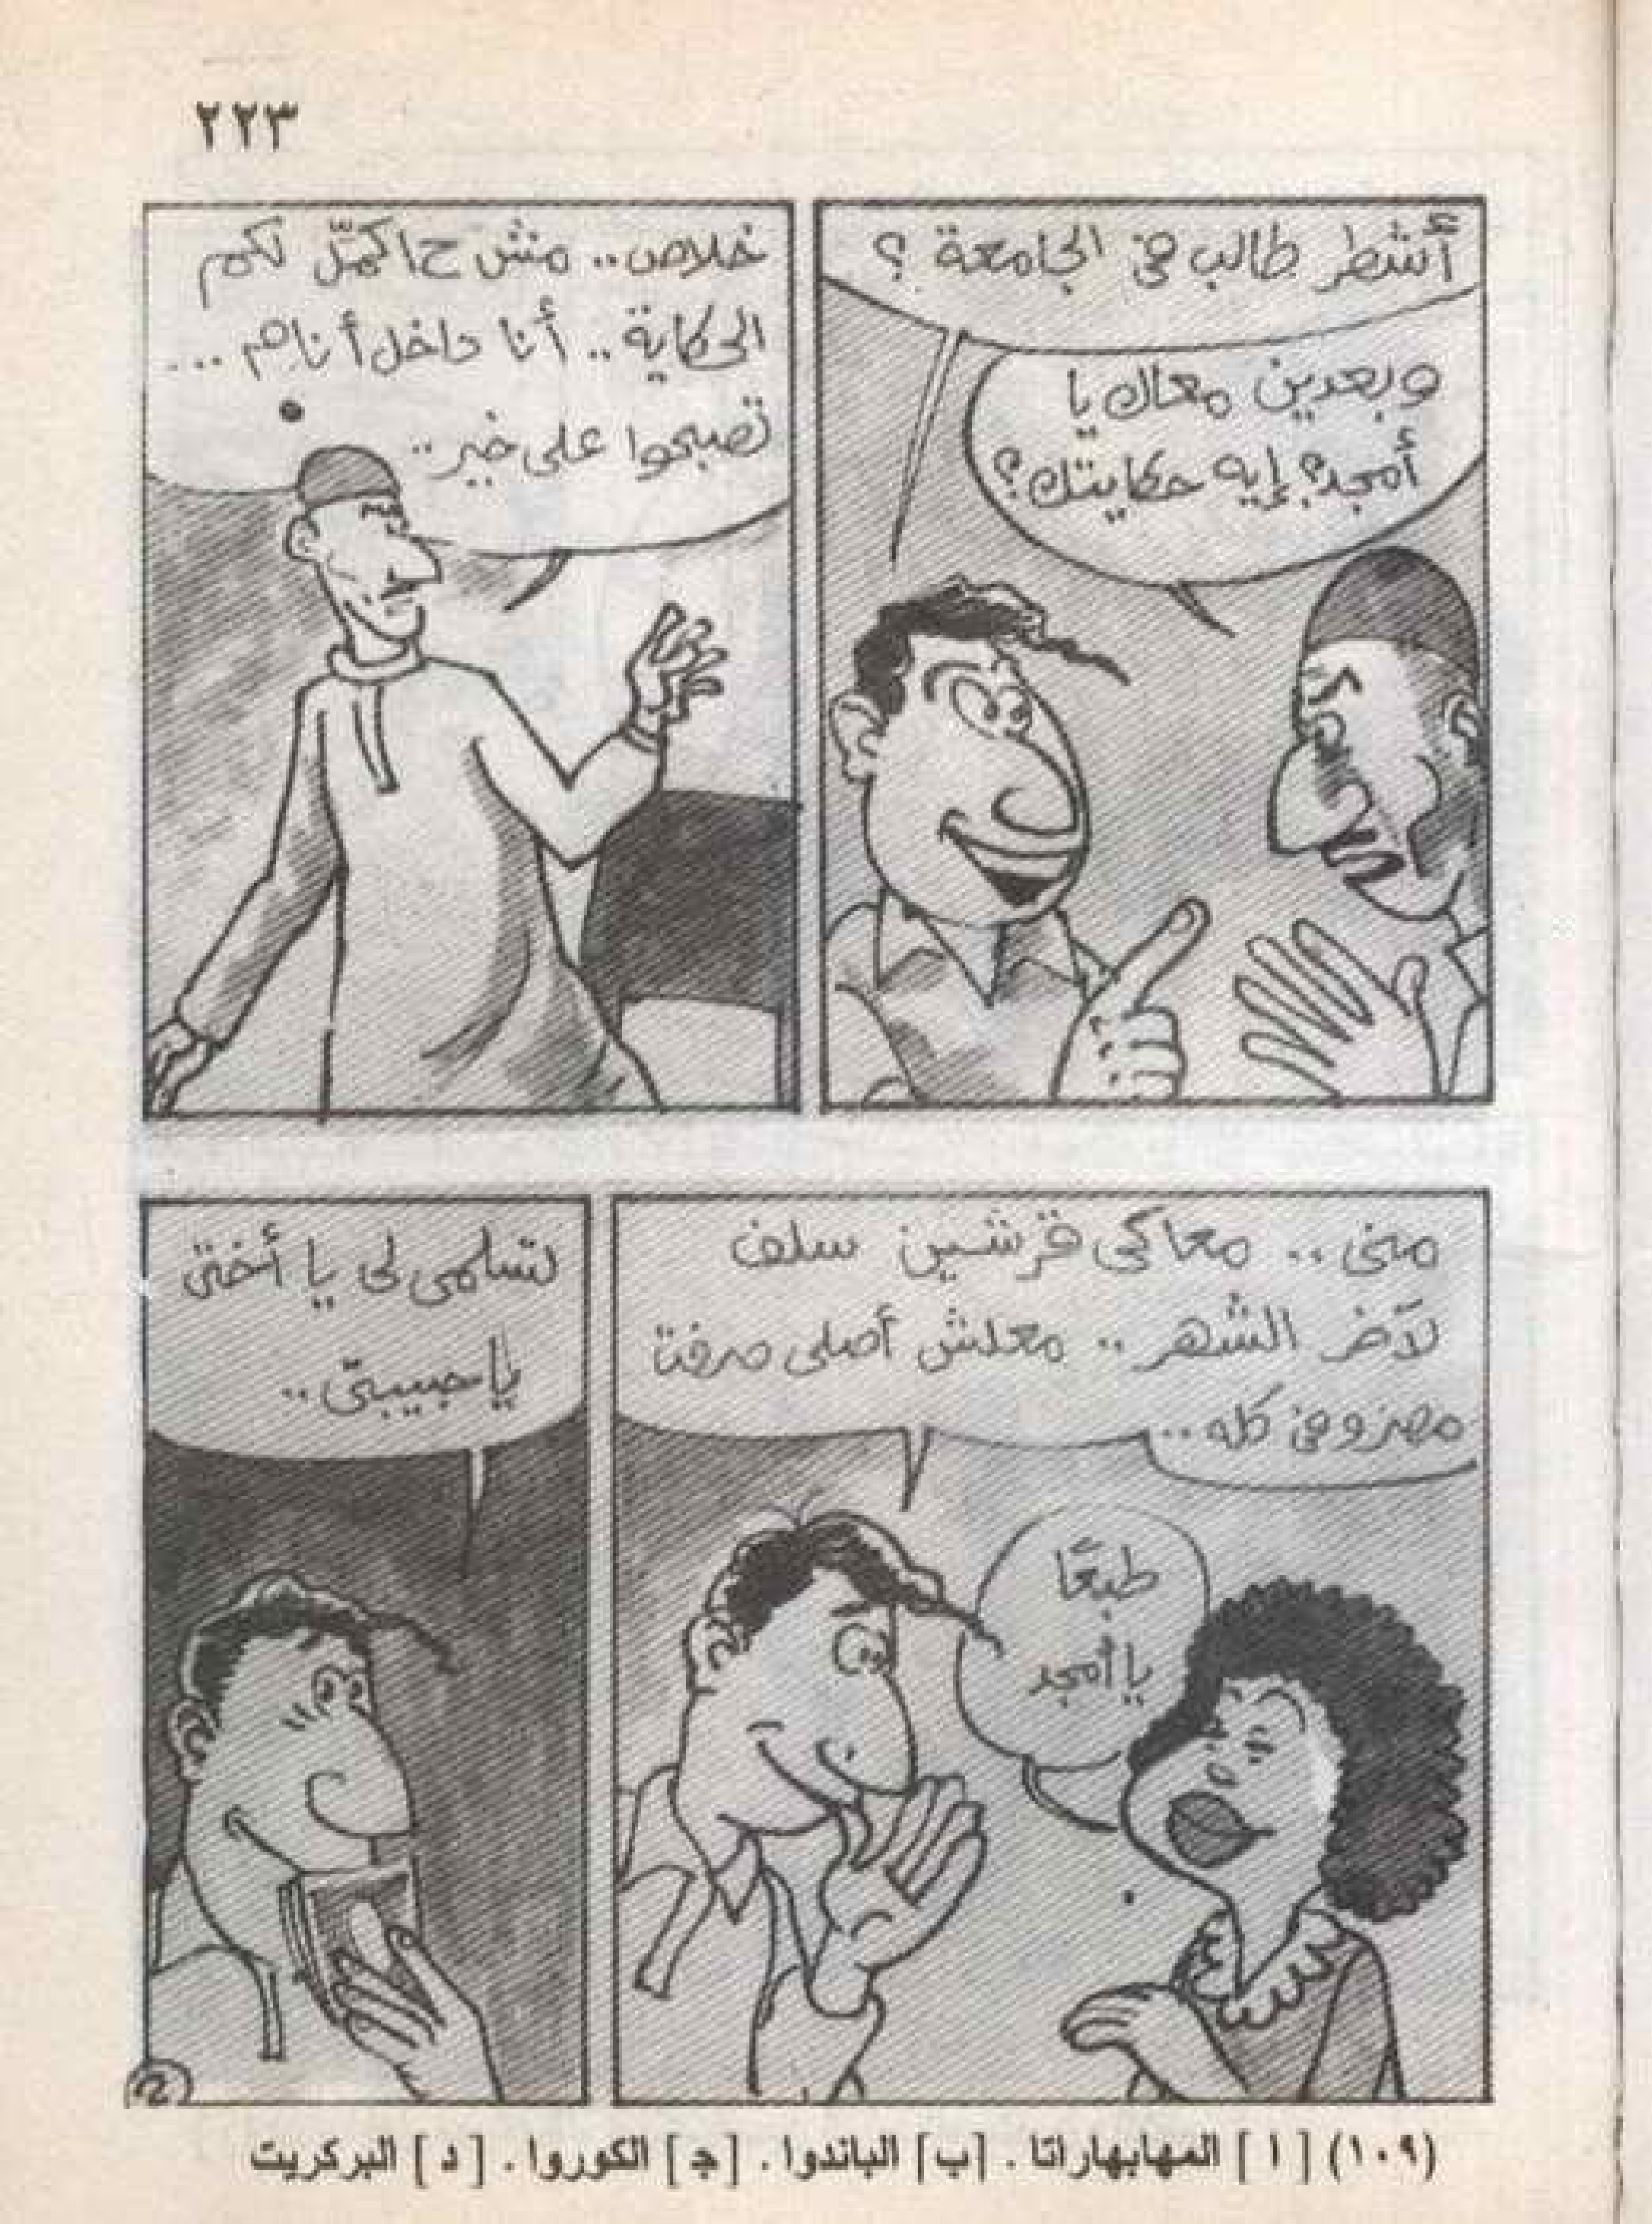 ٢٢٣
أشطر طالب في الجامعة ؟
وبعدين معاك يا
أمجد؟ إيه حكايتك؟
خلاص.. مش حاكمّل لكم
الحكاية.. أنا داخل أنام...
تصبحوا على خير..
منى.. معاكى قرشين سلف
لآخر الشهر.. معلش أصلى صرفت
مصروفى كله..
طبعًا
يا أمجد
تسلمى لى يا أختى
يا حبيبتى..
(١٠٩) [ ا ] المهابهاراتا . [ب] الباندوا . [ج] الكوروا . [ د ] البركريت